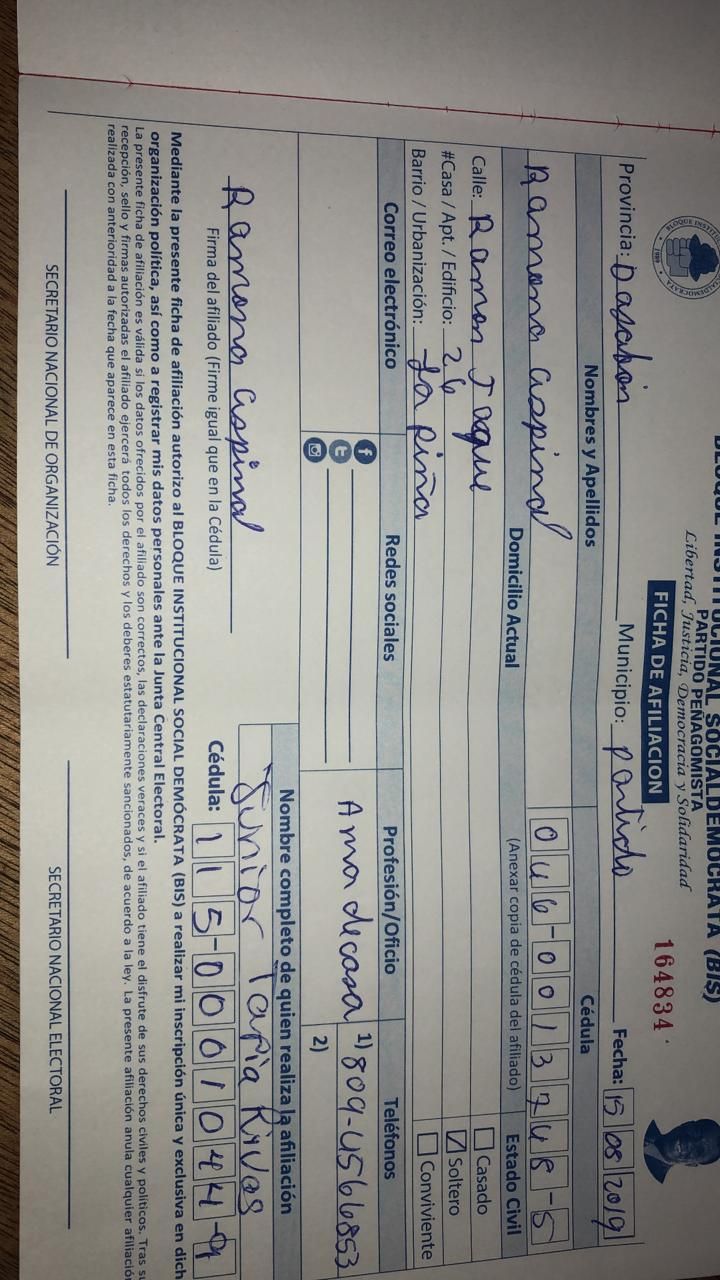 BLOQUE INSTITUCIONAL SOCIALDEMÓCRATA (BIS)
PARTIDO PEÑAGOMISTA
Libertad, Justicia, Democracia y Solidaridad
FICHA DE AFILIACION
164834
Provincia: Dascabón Municipio: partido Fecha: 15 08 2019
Nombres y Apellidos Cédula
Ramona aspinal 046-0013748-5
Domicilio Actual (Anexar copia de cédula del afiliado) Estado Civil
Calle: Ramon Jaque Casado
#Casa / Apt. / Edificio: 26 Soltero
Barrio / Urbanización: La piña Conviviente
Correo electrónico Redes sociales Profesión/Oficio Teléfonos
Ama de casa 1) 809-4566853
2)
Nombre completo de quien realiza la afiliación
Junior Tapia Rivas
Ramona aspinal
Firma del afiliado (Firme igual que en la Cédula) Cédula: 115-0001044-9
Mediante la presente ficha de afiliación autorizo al BLOQUE INSTITUCIONAL SOCIAL DEMÓCRATA (BIS) a realizar mi inscripción única y exclusiva en dich
organización política, así como a registrar mis datos personales ante la Junta Central Electoral.
La presente ficha de afiliación es válida si los datos ofrecidos por el afiliado son correctos, las declaraciones veraces y si el afiliado tiene el disfrute de sus derechos civiles y políticos. Tras su
recepción, sello y firmas autorizadas el afiliado ejercerá todos los derechos y los deberes estatutariamente sancionados, de acuerdo a la ley. La presente afiliación anula cualquier afiliación
realizada con anterioridad a la fecha que aparece en esta ficha.
SECRETARIO NACIONAL DE ORGANIZACIÓN SECRETARIO NACIONAL ELECTORAL